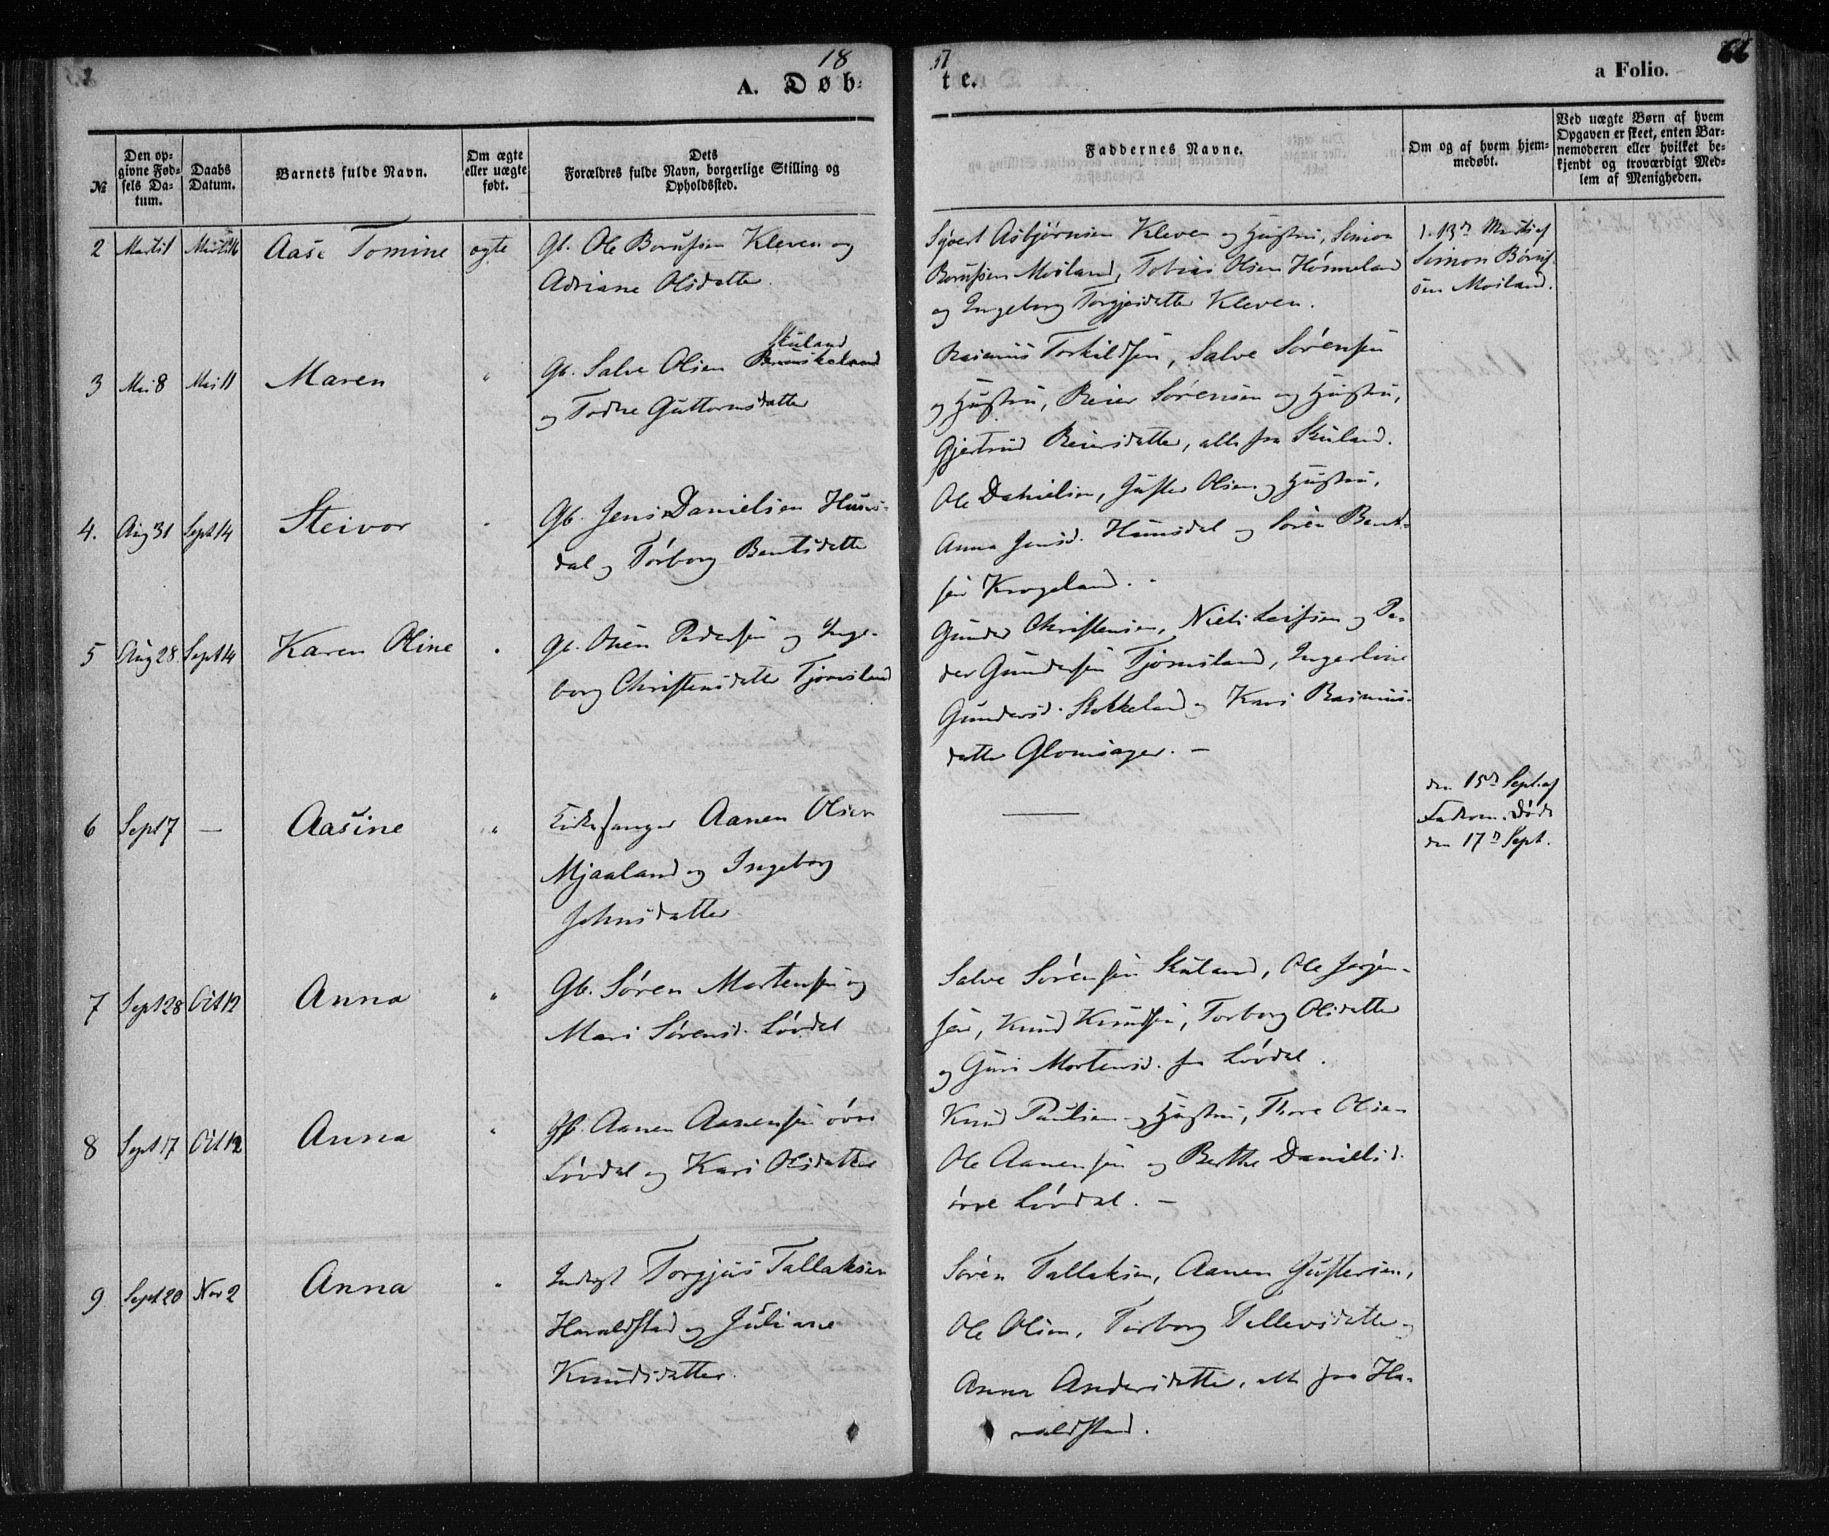 18 57
A. Døb- te. a Folio. 62
№
Den op-
givne Fød-
sels Da-
tum.
Daabs
Datum.
Barnets fulde Navn.
Om ægte
eller uægte
født.
Dets
Forældres fulde Navn, borgerlige Stilling og
Opholdssted.
Faddernes Navne.
Om og af hvem hjem-
medøbt.
Ved uægte Børn af hvem
Opgaven er skeet, enten Bar-
nemoderen eller hvilket be-
kjendt og troværdigt Med-
lem af Menigheden.
2 Marts 1 Marts 16 Aase Tomine ægte
Gb. Ole Børufsen Kleven og
Adriane Olsdatter
Syvert Asbjørnsen Kleven og Hustru, Simon
Børufsen Moiland, Tobias Olsen Hønneland
og Ingeborg Torgjesdatter Kleven.
d. 13de Marts af
Simon Børuf-
sen Moiland.
3 Mai 8 Mai 11 Maren "
Skuland
Gb. Salve Olsen
og Todne Guttormsdatter
Rasmus Torkildsen, Salve Sørensen
og Hustru, Reier Sørensen og Hustru,
Gjertrud Reiersdatter, alle fra Skuland.
4. Aug 31 Sept 14 Steivor "
Gb. Jens Danielsen Huns-
dal og Torborg Bentsdatter
Ole Danielsen, Gufter Olsen og Hustru,
Anna Jensd. Hunsdal og Søren Bent-
sen Krogeland.
5 Aug 28 Sept 14 Karen Oline "
Gb. Osten Pedersen og Inge-
borg Christensdatter Tjomsland
Gunder Christensen, Niels Leifsen og Pe-
der Gundersen Tjomsland, Ingerline
Gundersd. Stokkeland og Kari Rasmus-
datter Glomsager. —
6 Sept 7 — Aasine "
Kirkesanger Aanen Olsen
Mjaaland og Ingeborg
Johnsdatter
—
den 15de Sept. af
Faderen. Død
den 17de Sept.
7 Sept 28 Oct 12 Anna "
Gb. Søren Mortensen og
Mari Sørensd. Løvdal
Salve Sørensen Skuland, Ole Jørgen-
sen, Knud Knudsen, Torborg Olsdatter
og Guri Mortensd. fra Løvdal.
8 Sept 17 Oct 12 Anna "
Gb. Aanen Aanensen øvre
Løvdal og Kari Olsdatter
Knud Paulsen og Hustru, Thore Olsen
Ole Aanensen og Berthe Danielsd.
øvre Løvdal. —
9 Sept 20 Nov 2 Anna "
Inderst Torgjus Tallaksen
Haraldstad og Juliane
Knudsdatter.
Søren Tallaksen, Aanen Guftersen,
Ole Olsen, Torborg Tellevsdatter og
Anna Andersdatter, alle fra Ha-
raldstad.